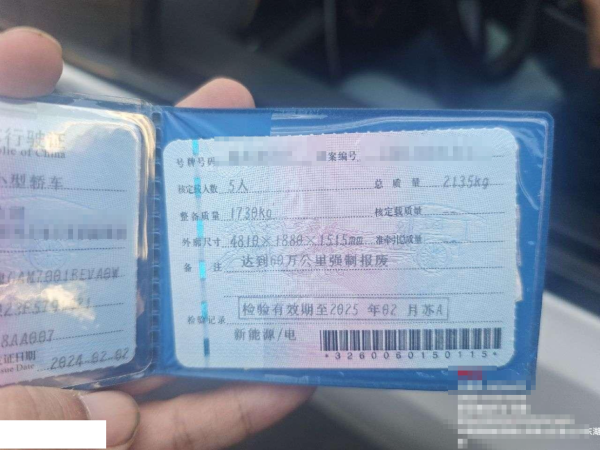 行驶证
of China
小型轿车
8AA007
证日期
2024-02-02
号牌号码
档案编号
核定载人数 5人
总质量 2135kg
整备质量 1730kg
核定载质量 --
外廓尺寸 4810×1880×1515mm
准牵引总质量 --
备注 达到60万公里强制报废
检验记录 检验有效期至2025年02月苏A
新能源/电
*3260060150115*